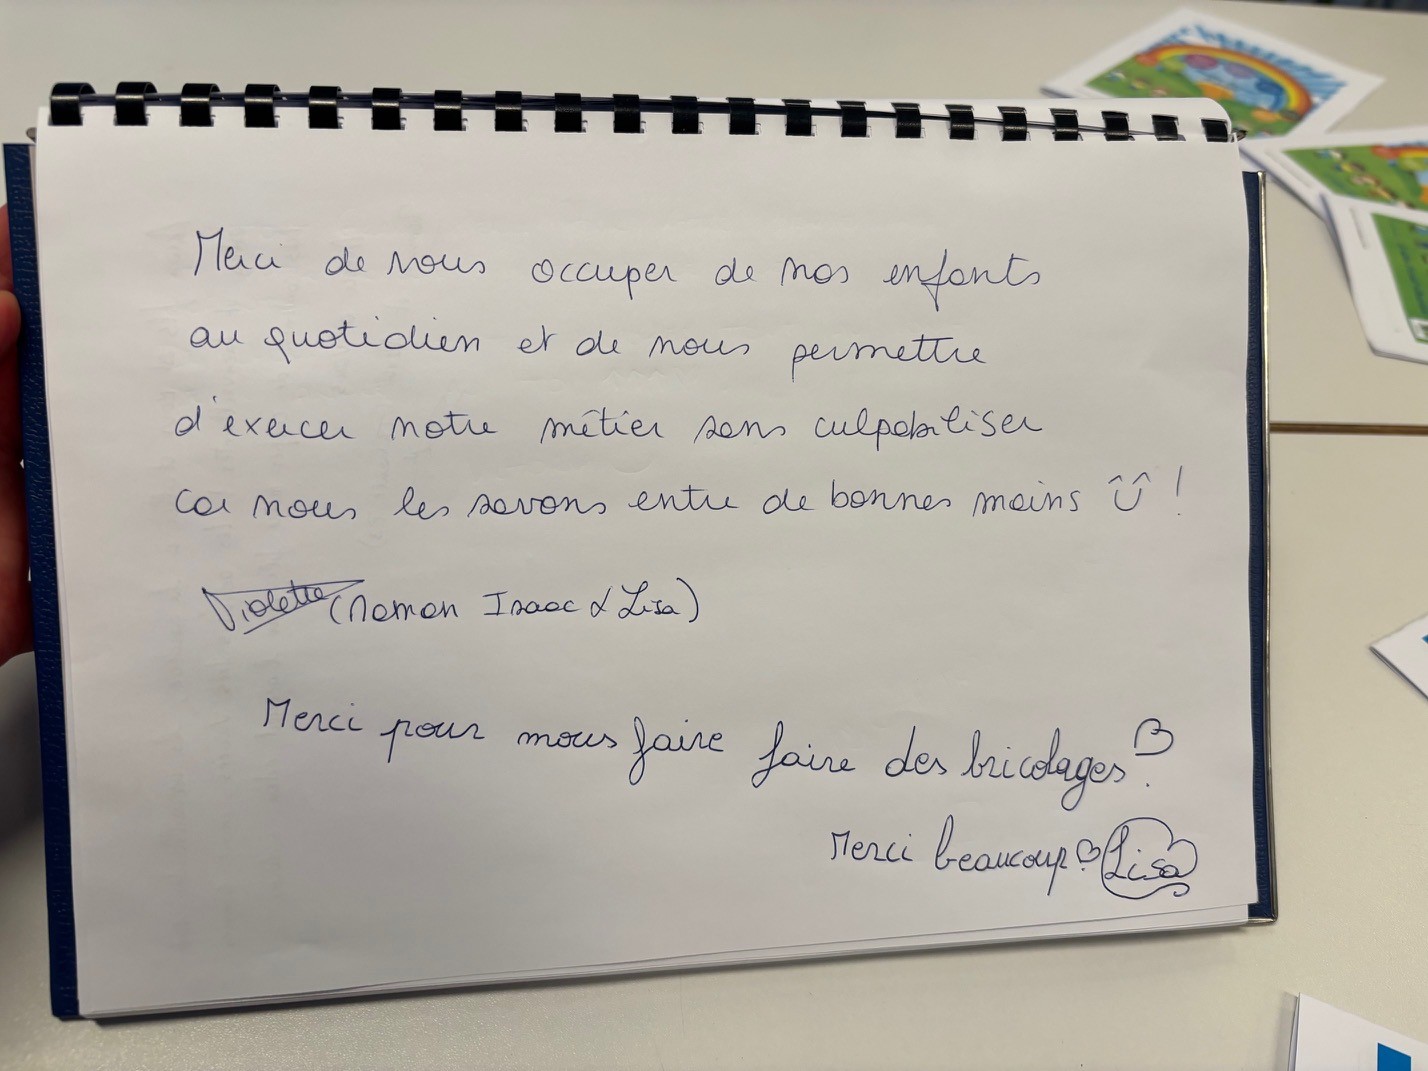 Merci de vous occuper de nos enfants
au quotidien et de nous permettre
d'exercer notre métier sans culpabiliser
car nous les savons entre de bonnes mains !
Violette (Maman Isaac & Lisa)
Merci pour nous faire faire des bricolages
Merci beaucoup Lisa